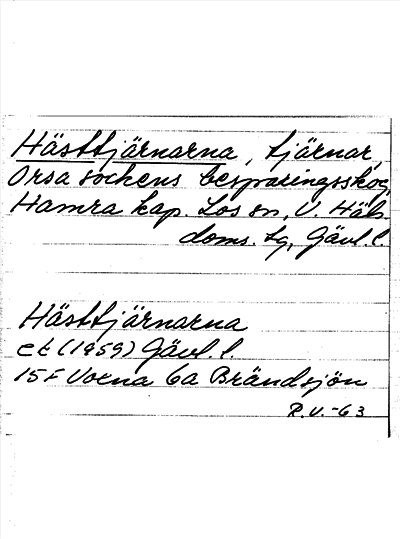 Hästtjärnarna, tjärnar,
Orsa sockens besparingsskog,
Hamra kap. Los sn, V. Häls.
doms. tg, Gävl. l.
Hästtjärnarna
ek (1959) Gävl. l.
15F Voxna 6a Brändsjön
R.V. -63